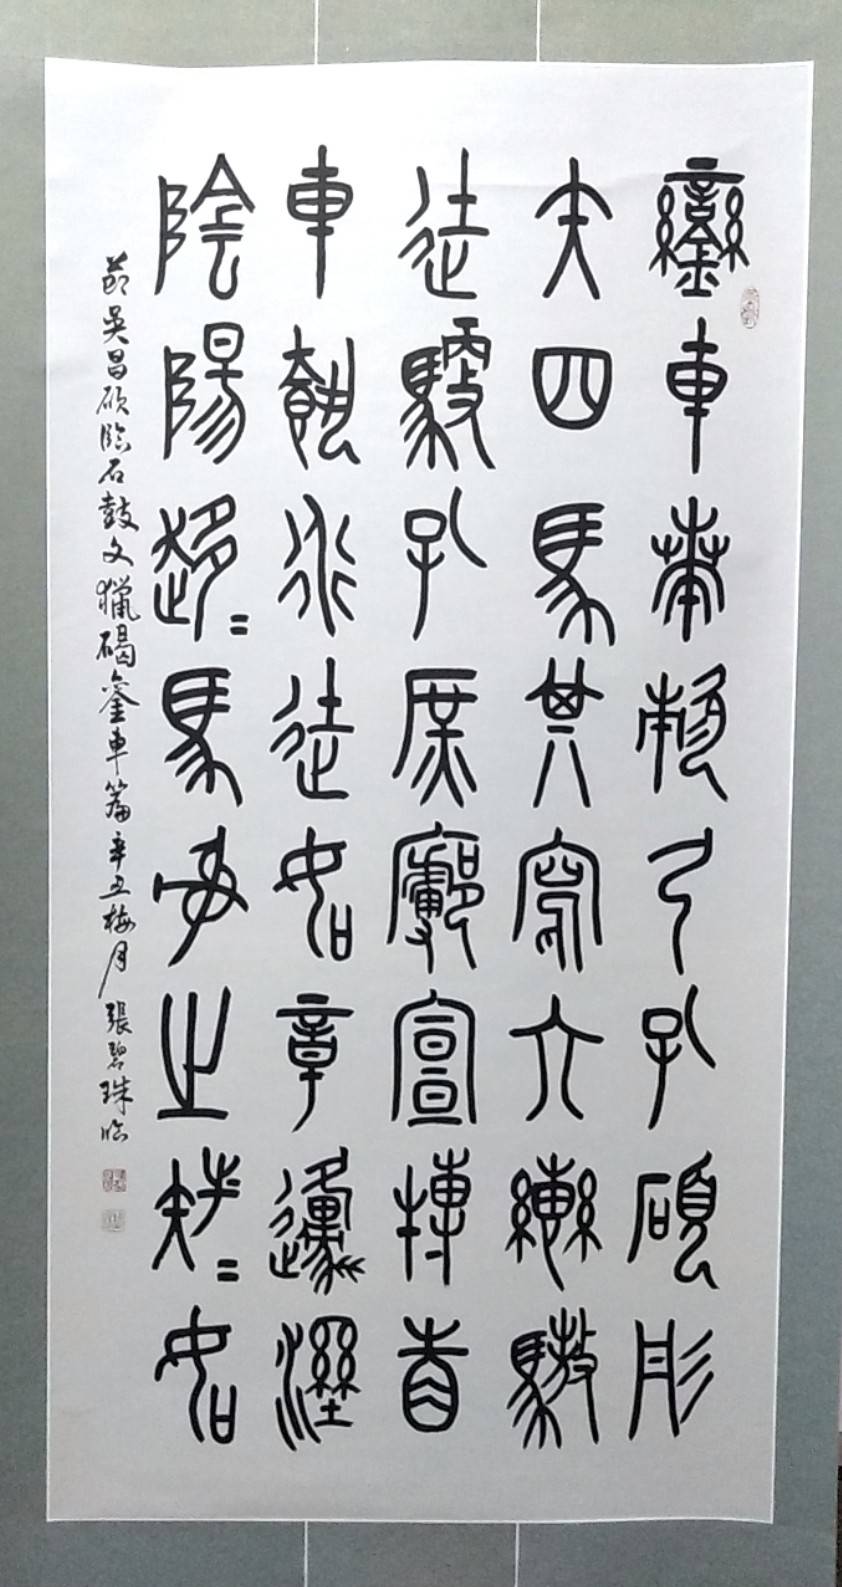 鑾車𠦪欶弓孔碩彤
矢四馬其寫六轡驁
徒馭孔庶廓宣搏眚
車行徒如章邍溼
陰陽趍〻馬射之如
節吳昌碩臨石鼓文獵碣鑾車篇辛丑梅月張碧珠臨